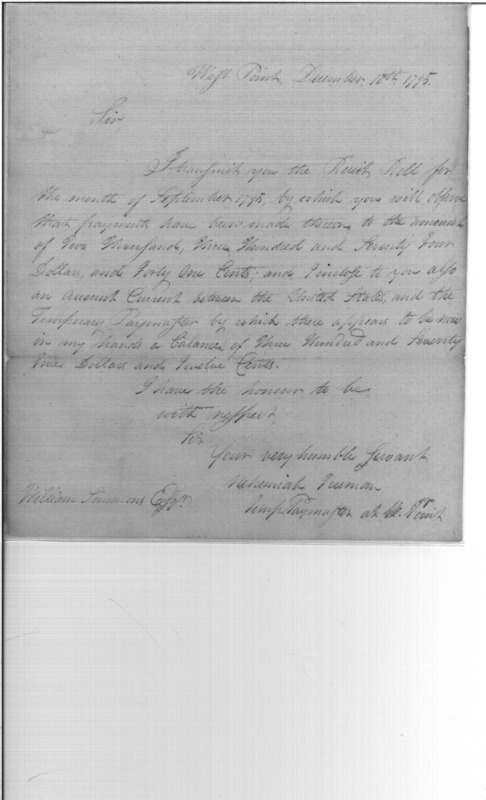 West Point December 10th 1795.
Sir
I transmit you the Receit Roll for
the month of September 1795, by which you will observe
that payments have been made thereon, to the amount
of Five Thousand, Three Hundred and Seventy Four
Dollars, and Forty One Cents; and I inclose to you also
an account Current between the United States, and the
Temporary Paymaster by which there appears to be now
in my hands a balance of Three Hundred and Seventy
Dollars and Twelve Cents.
I have the honour to be,
with respect
Sir
Your very humble Servant
Nehemiah Freeman
Temp. Paymaster at W. Point
William Simmons Esqr.